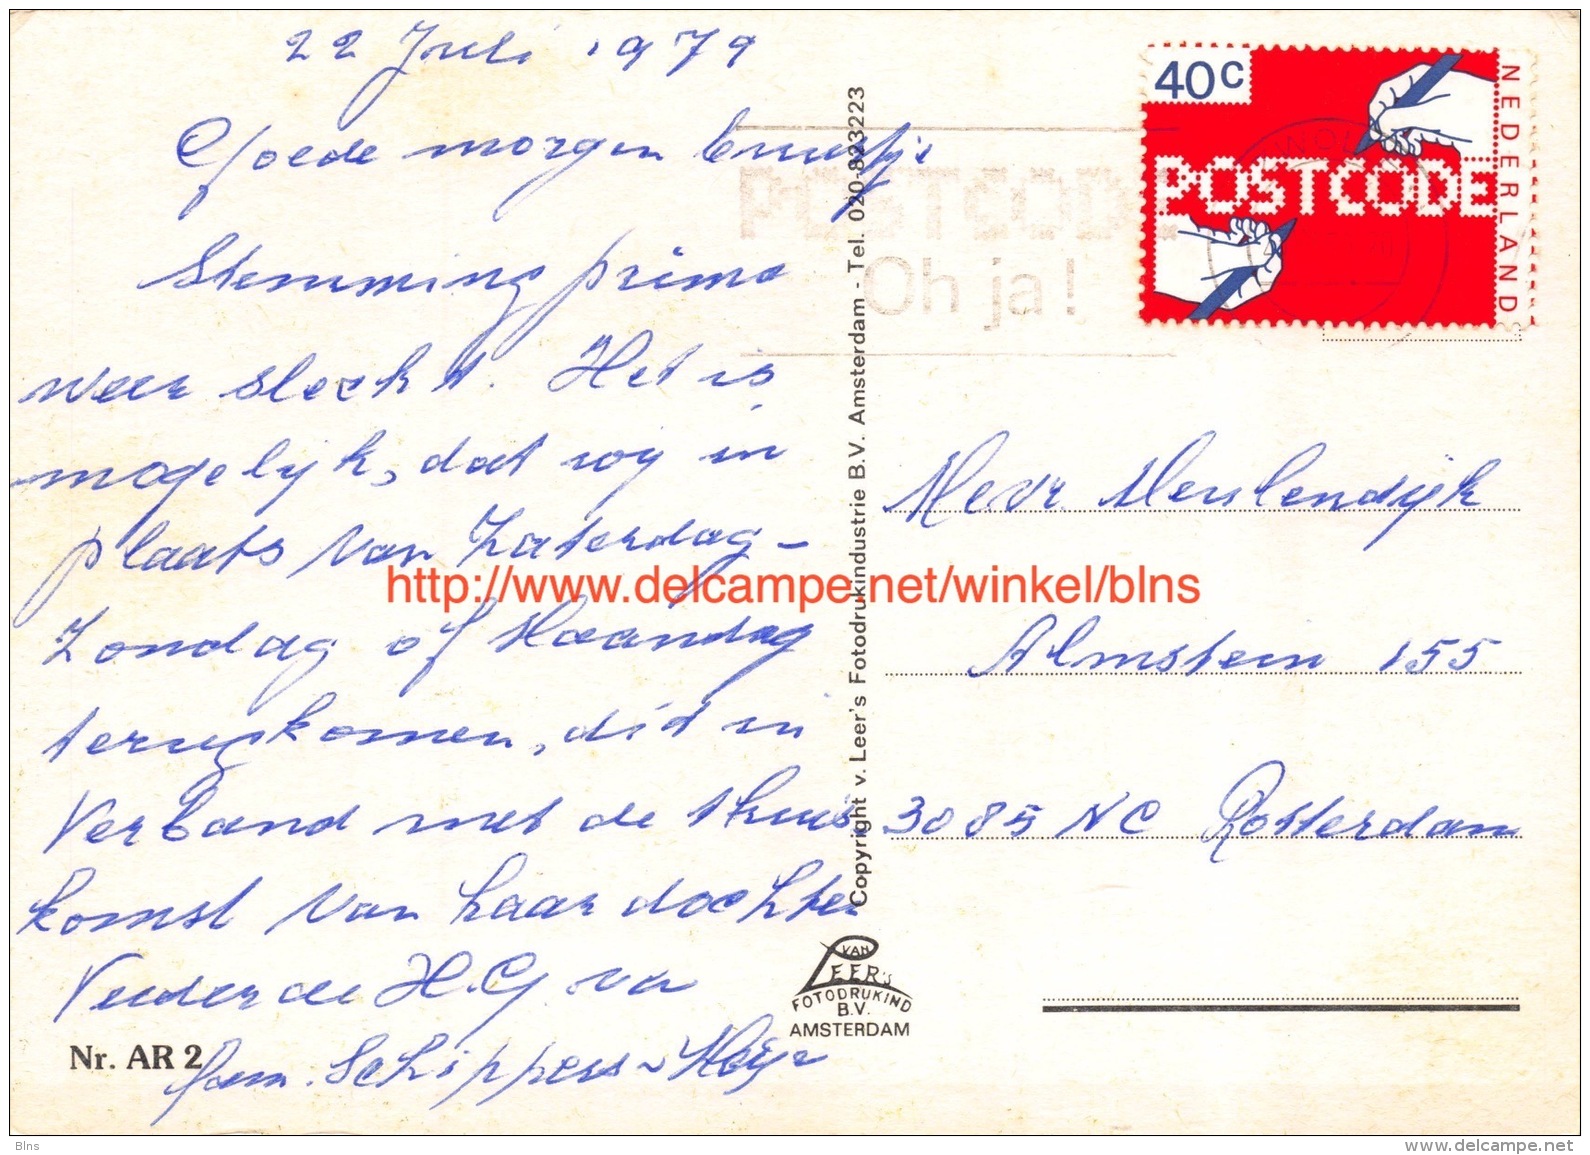 22 Juli 1979
Goede morgen
Stemming prima
weer slecht. Het is
mogelijk, dat wij in
plaats van Zaterdag -
Zondag of Maandag
terugkomen, dit in
verband met de thuis
komst van haar dochter
Verder de H.G. van
fam. Schippers - Meije
Nr. AR 2
Copyright v. Leer's Fotodrukindustrie B.V. Amsterdam - Tel. 020-823223
VAN
LEER'S
FOTODRUKIND
B.V.
AMSTERDAM
POSTCODE
Oh ja!
40c
POSTCODE
NEDERLAND
Mevr Meulendijk
Almstein 155
3085 NC Rotterdam
http://www.delcampe.net/winkel/blns
Blns
www.delcampe.net